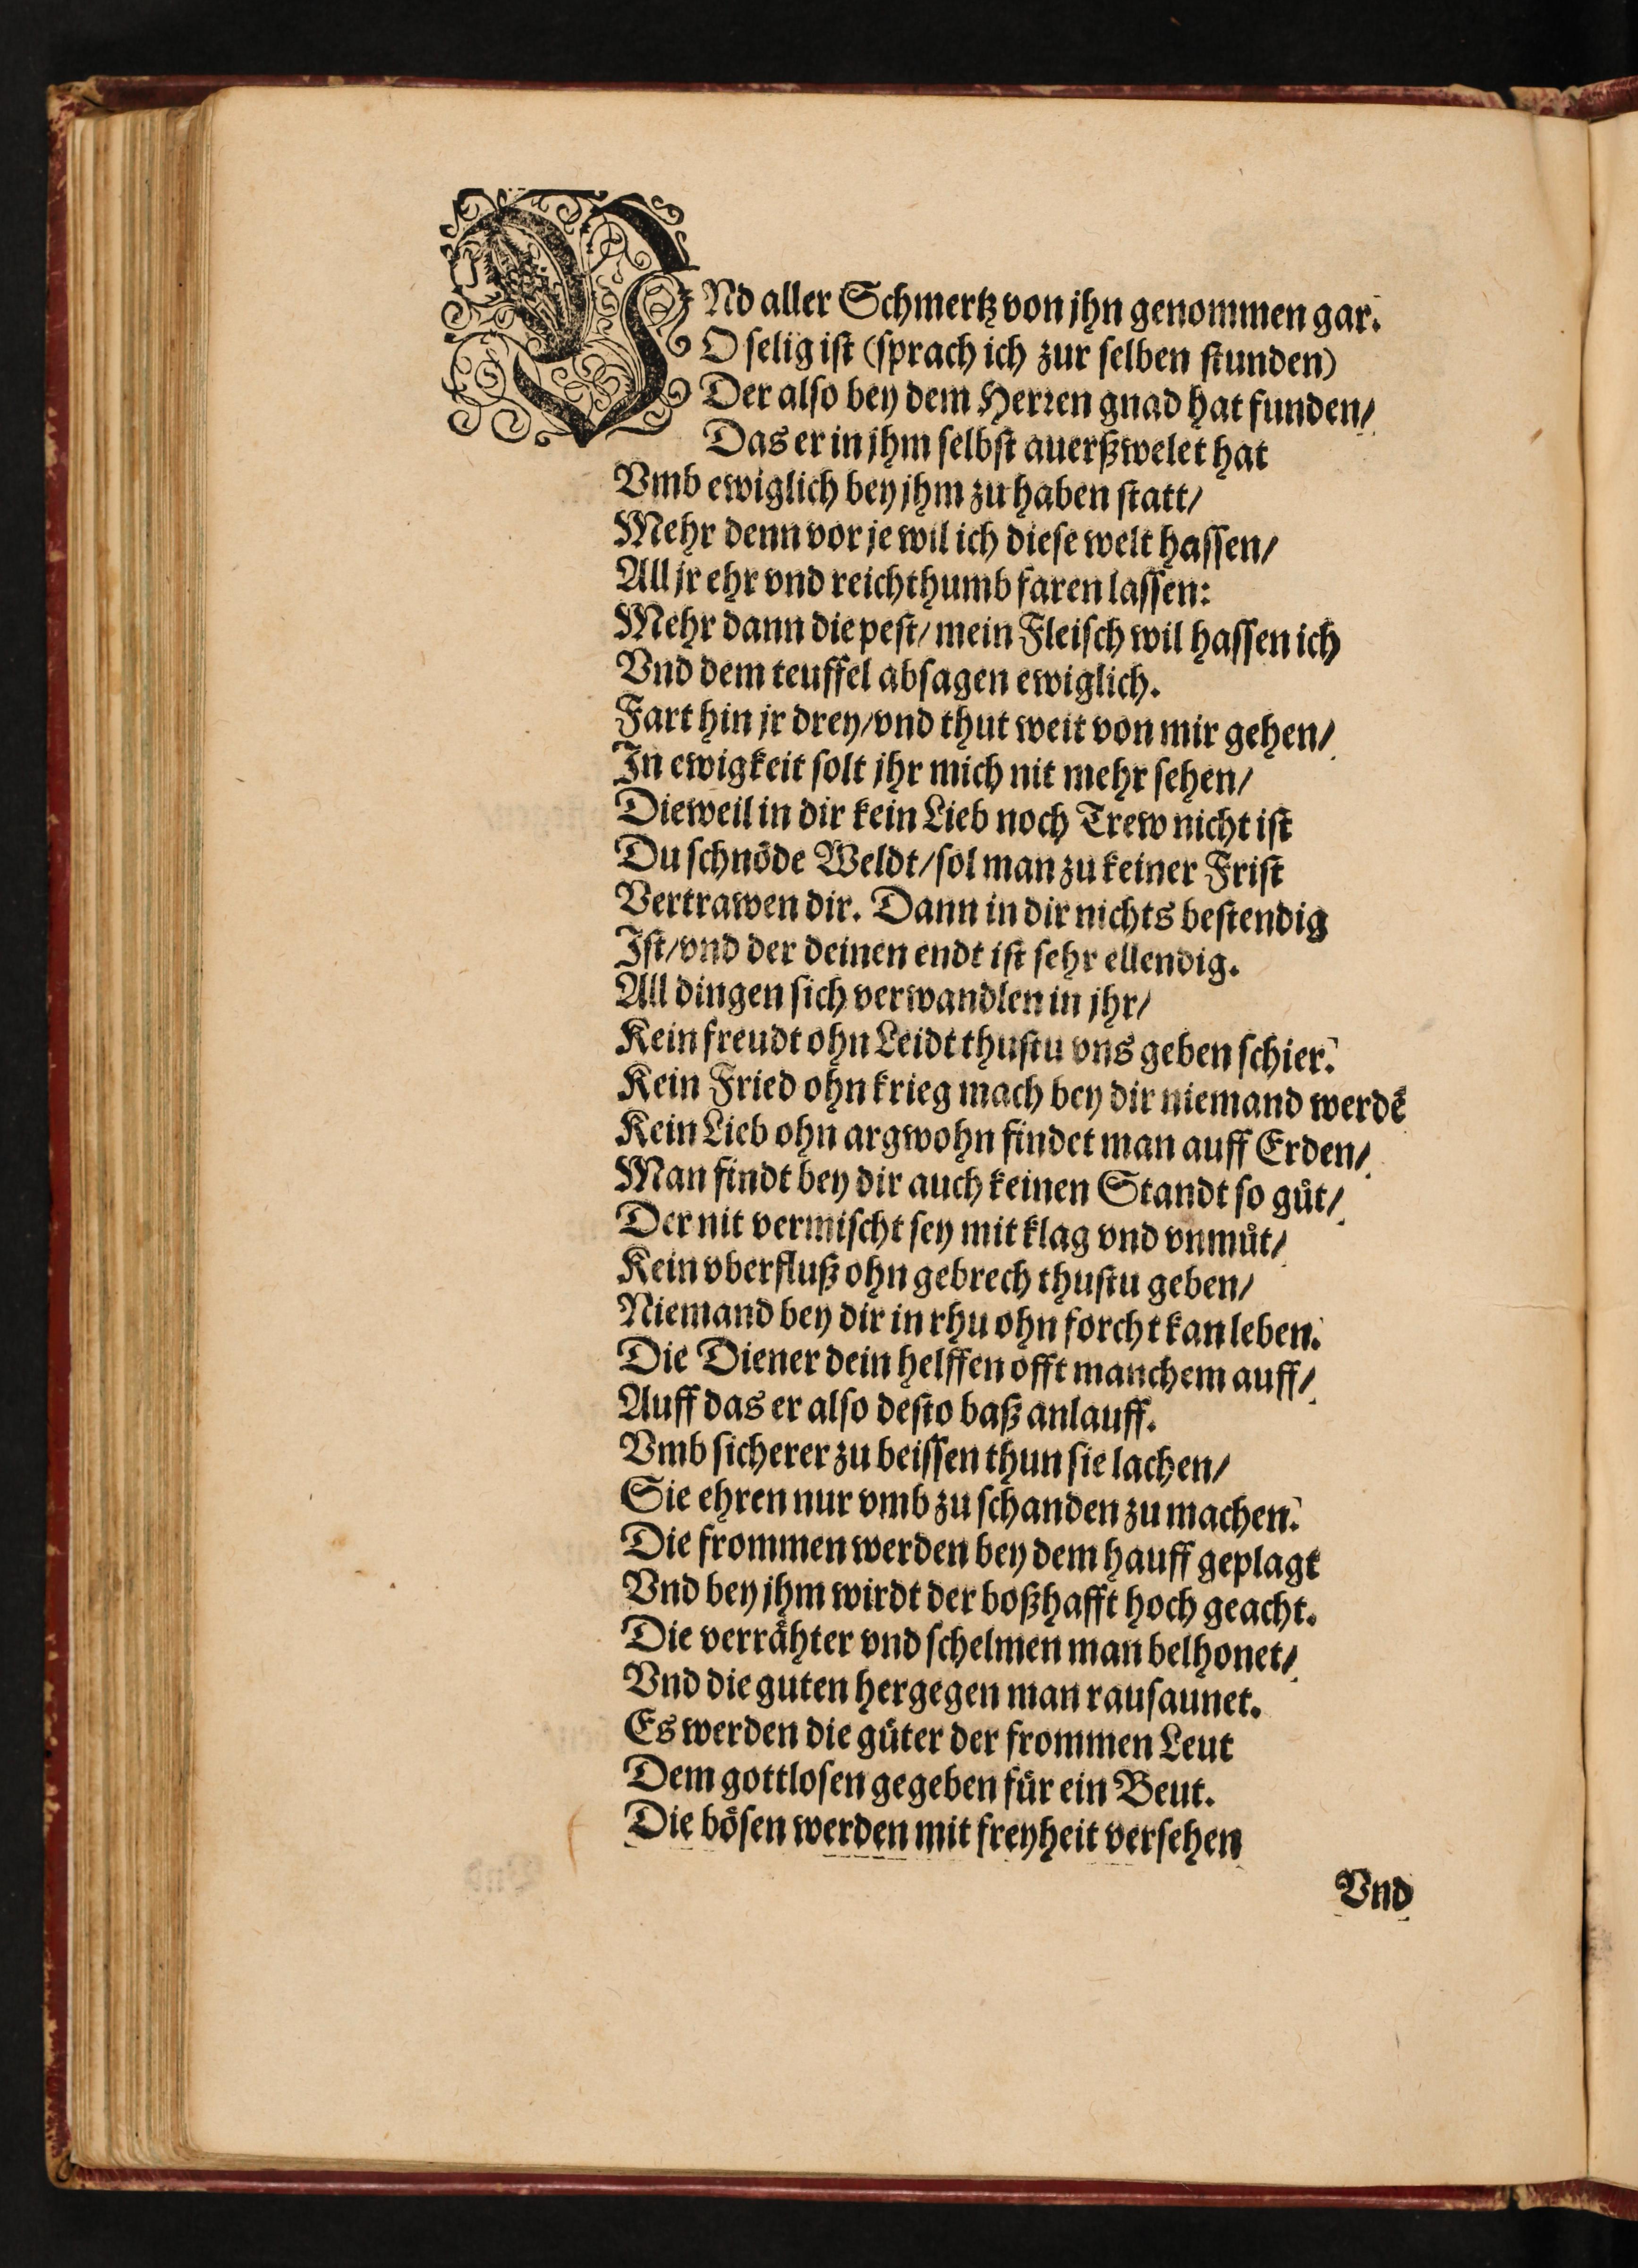 VNd aller Schmertz von jhn genommen gar.
O selig ist (sprach ich zur selben stunden)
Der also bey dem Herren gnad hat funden/
Das er in jhm selbst auerßwelet hat
Vmb ewiglich bey jhm zu haben statt/
Mehr denn vor je wil ich diese welt hassen/
All jr ehr vnd reichthumb faren lassen:
Mehr dann die pest/ mein Fleisch wil hassen ich
Vnd dem teuffel absagen ewiglich.
Fart hin jr drey/ vnd thut weit von mir gehen/
In ewigkeit solt jhr mich nit mehr sehen/
Dieweil in dir kein Lieb noch Trew nicht ist
Du schnöde Weldt/ sol man zu keiner Frist
Vertrawen dir. Dann in dir nichts bestendig
Ist/ vnd der deinen endt ist sehr ellendig.
All dingen sich verwandlen in jhr/
Kein freudt ohn Leidt thustu vns geben schier.
Kein Fried ohn krieg mach bey dir niemand werdē
Kein Lieb ohn argwohn findet man auff Erden/
Man findt bey dir auch keinen Standt so gůt/
Der nit vermischt sey mit klag vnd vnmůt/
Kein vberfluß ohn gebrech thustu geben/
Niemand bey dir in rhu ohn forcht kan leben.
Die Diener dein helffen offt manchem auff/
Auff das er also desto baß anlauff.
Vmb sicherer zu beissen thun sie lachen/
Sie ehren nur vmb zu schanden zu machen.
Die frommen werden bey dem hauff geplagt
Vnd bey jhm wirdt der boßhafft hoch geacht.
Die verrähter vnd schelmen man belhonet/
Vnd die guten hergegen man rausaunet.
Es werden die güter der frommen Leut
Dem gottlosen gegeben für ein Beut.
Die bösen werden mit freyheit versehen
Vnd